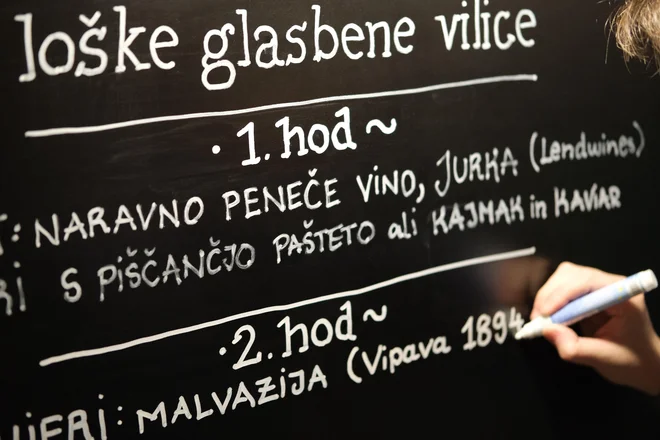 loške glasbene vilice
· 1. hod ~
NARAVNO PENEČE VINO, JURKA (Lendwines)
S PIŠČANČJO PAŠTETO ali KAJMAK in KAVIAR
· 2. hod ~
: MALVAZIJA (Vipava 1894